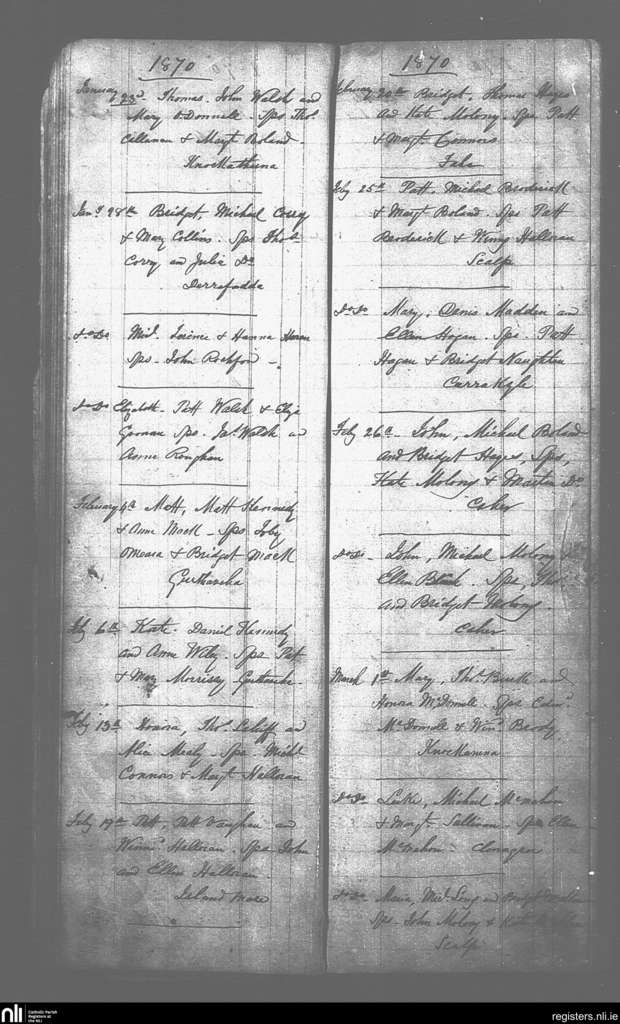 1870
January 23d. Thomas. John Walsh and
Mary O'Donnell. Sps Thos.
Callanan & Margt Boland
Knockathuna
Jany 28th Bridget, Michael Corry
& Mary Collins. Sps Thos.
Corry and Julia Do
Derrafadda
Do Do Terence & Hanna
Sps. John Rochford
Do Do Elizabeth. Patt Walsh & Eliza
Sps. Jas. Walsh and
Anne Roughan
February 4th Matt, Matt Kennedy
& Anne Mack - Sps Toby
Omeara & Bridget Mack
Feby 6th Kate. Daniel Kennedy
and Anne Sps. Pat
& Mary Morrissy
Feby 13th Honora, Thos. and
Alice Mealy. Sps. Michl
Connors & Margt Halloran
Feby 19th Patt, Patt Vaughan and
Halloran. Sps John
and Ellen Halloran.
Island more
1870
February 20th Bridget, Thomas Hayes
and Kate Molony. Sps. Patt
& Margt. Connors
Feby 25th Patt, Michael Broderick
& Margt Boland. Sps Patt
Broderick & Winny Halloran
Scalp
Do Do Mary, Denis Madden and
Ellen Hogan. Sps. Patt
Hogan & Bridget Naughten
Currakyle
Feby 26th - John, Michael Boland
and Bridget Hayes, Sps,
Kate Molony & Martin Do
Caher
Do Do - John, Michael Molony &
Ellen Sps, Thos.
and Bridget Molony.
Caher
March 1st Mary, Thos. Burke and
Honora McDonnell. Sps
McDonnell & Winy Brody
Do Do Luke, Michael McMahon
& Margt. Sullivan. Sps Ellen
McMahon - Clonagro
Do Do Maria, Michl. Long and
Sps. John Molony &
Scalp
nli
Catholic Parish
Registers at
the NLI
registers.nli.ie